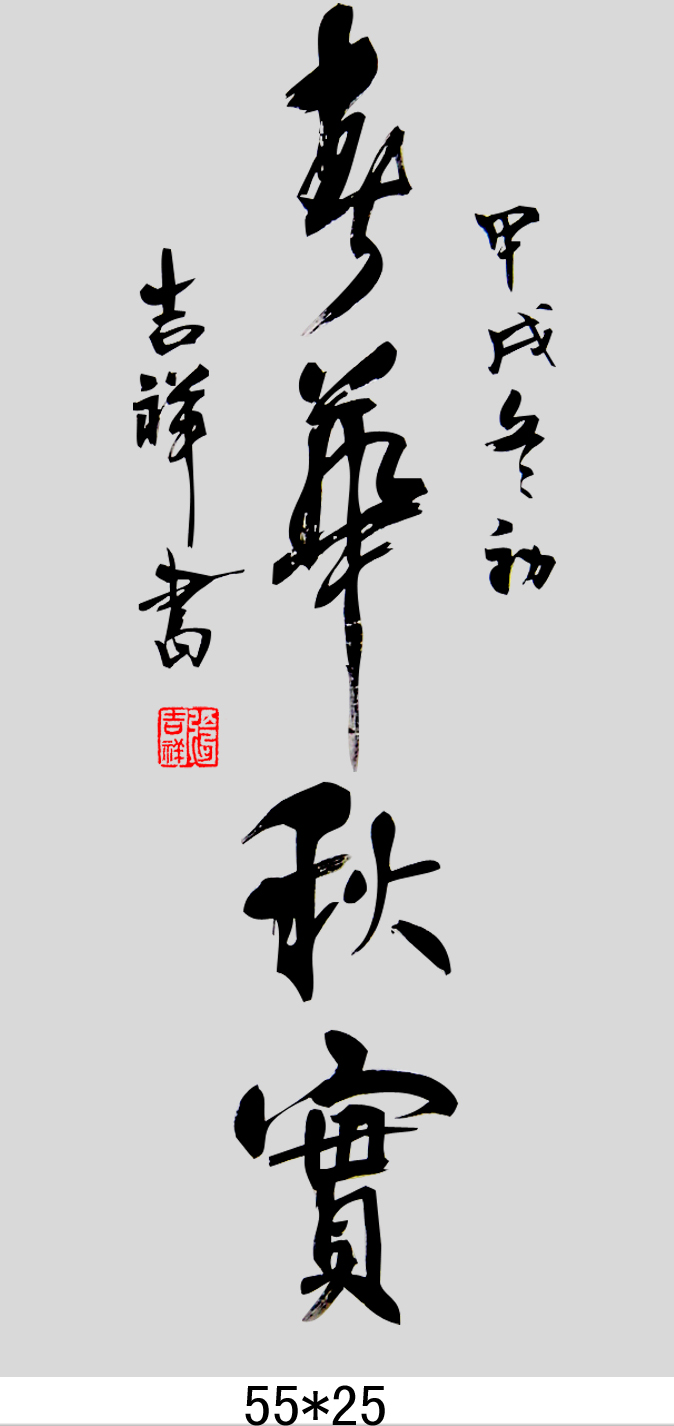 甲戌冬初
春華秋實
吉祥書
張吉祥
55*25